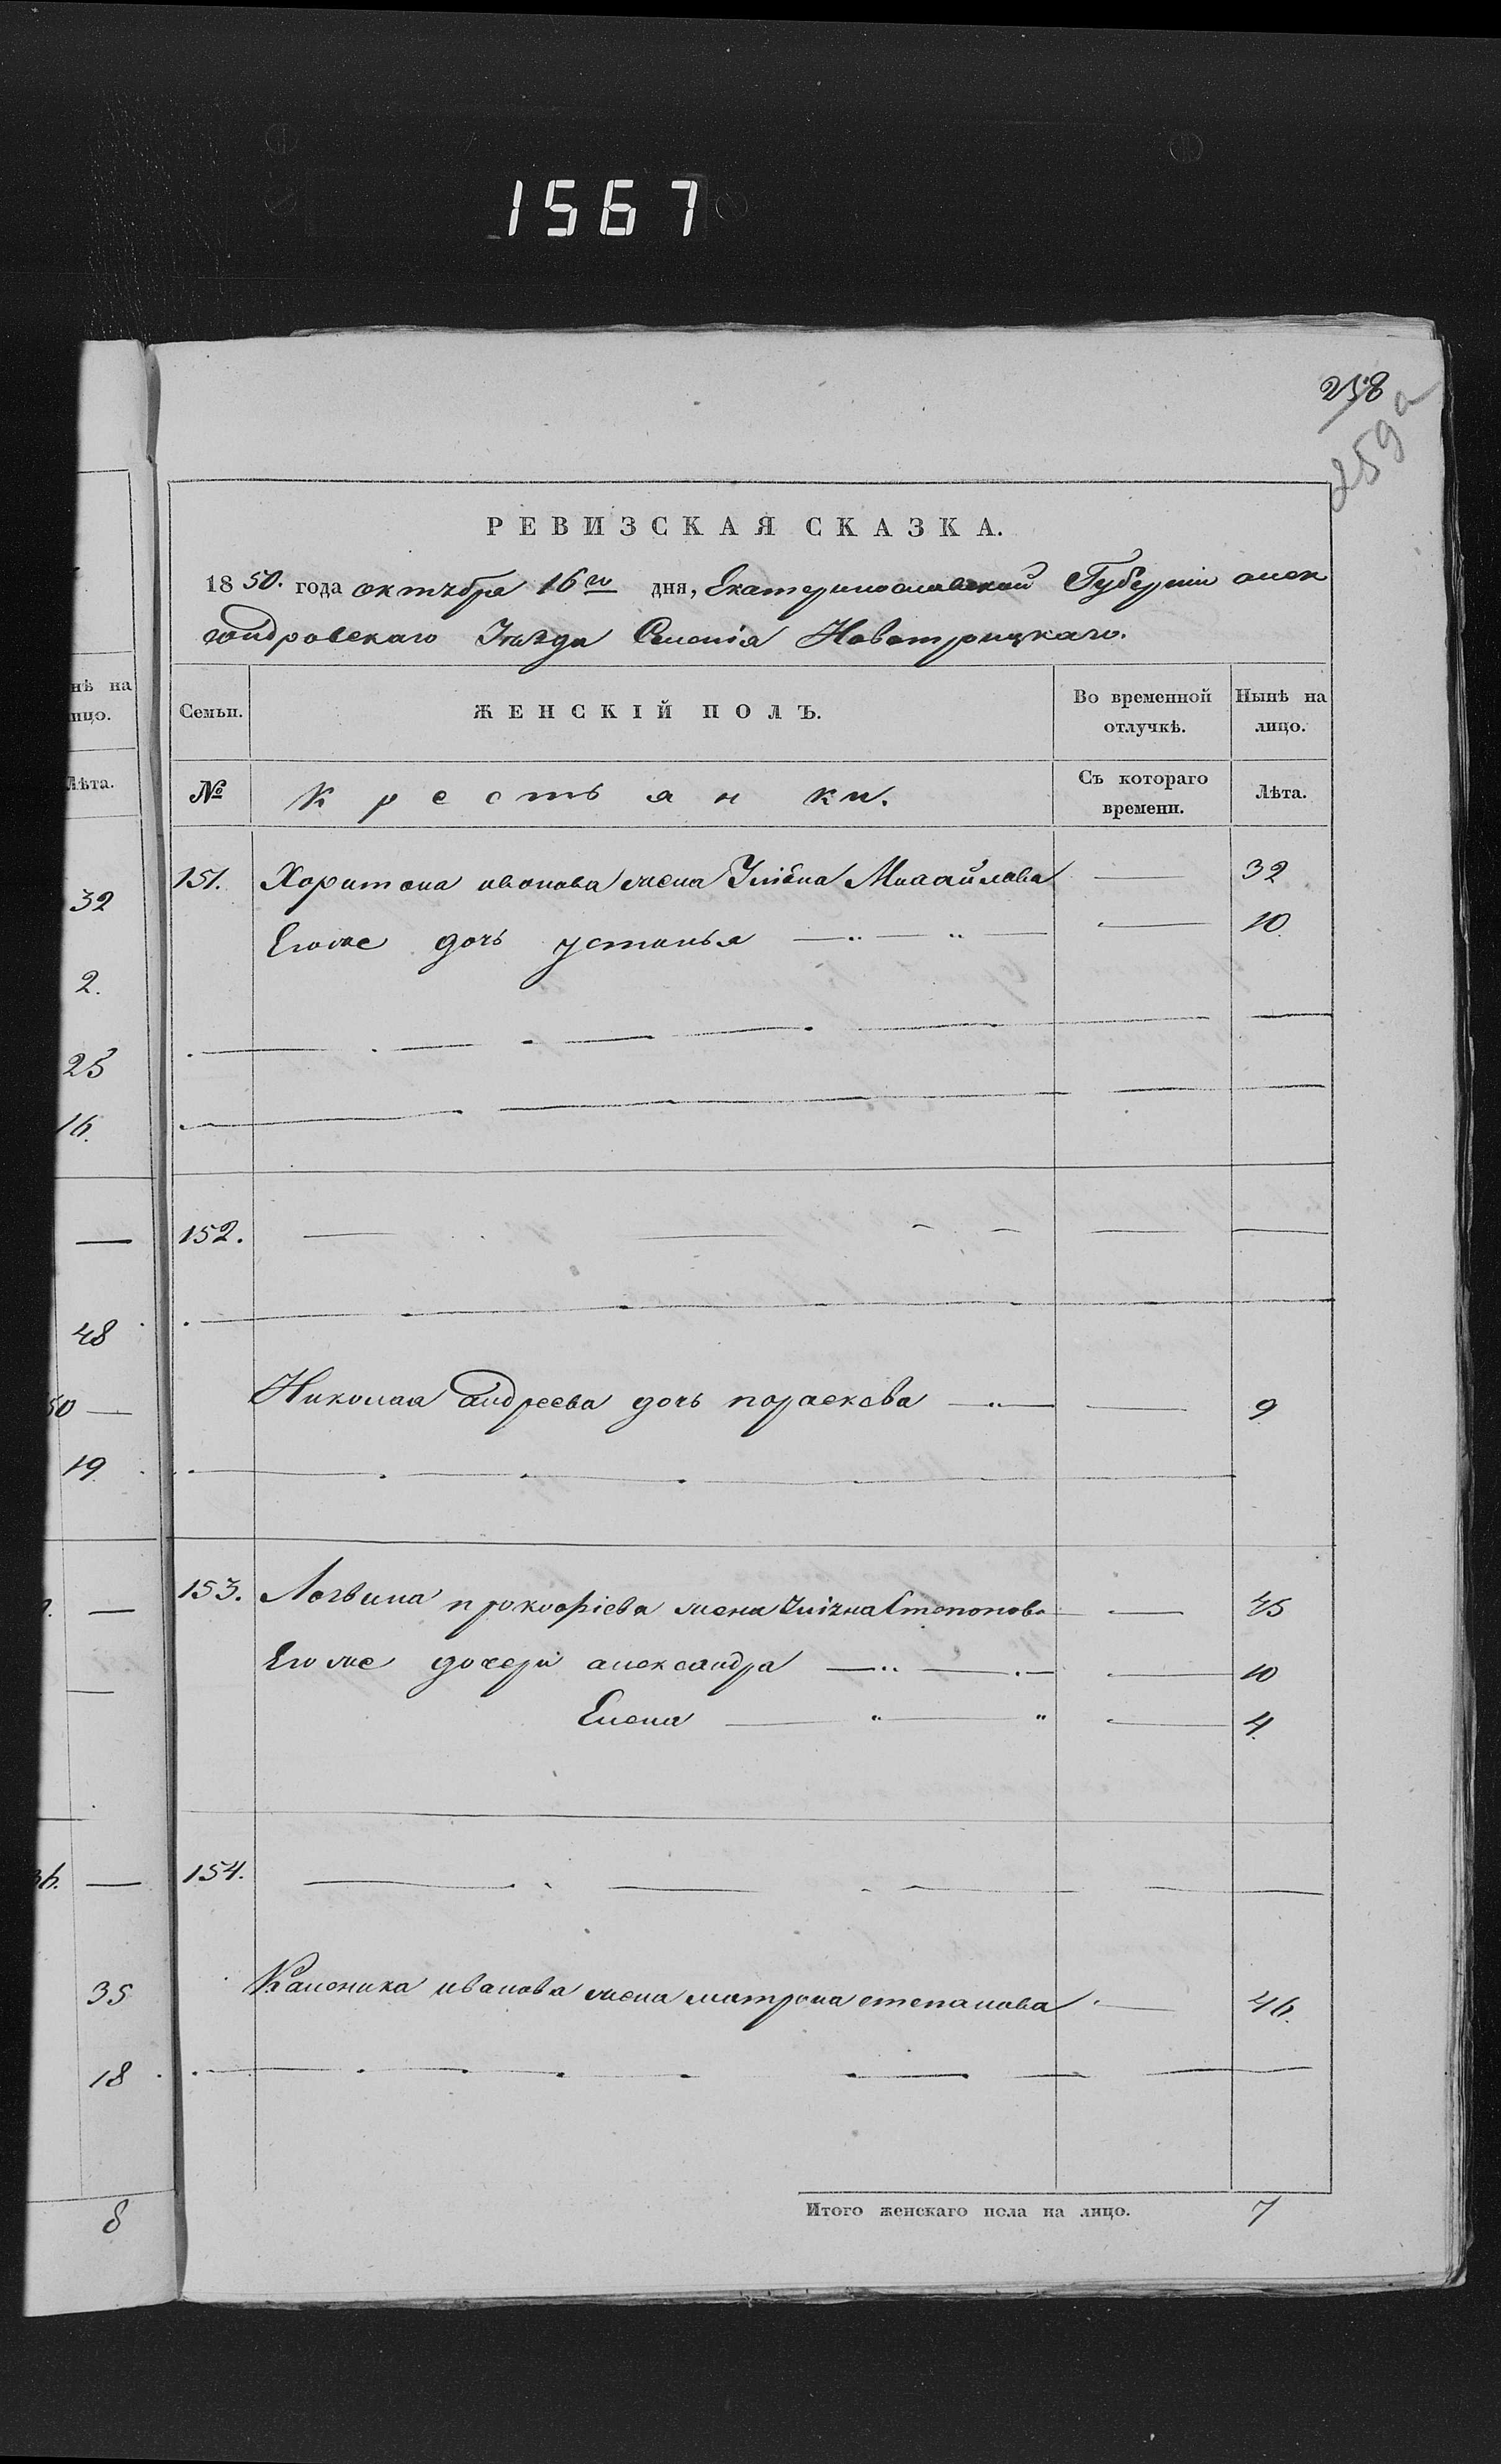 1567
258
259 а
РЕВИЗСКАЯ СКАЗКА.
1850. года октября 16го дня, Екатеринославской Губерніи алек
сандровскаго Уѣзда Селенія Новотроицкаго.
Семьи.
ЖЕНСКІЙ ПОЛЪ.
Во временной отлучкѣ.
Нынѣ на лицо.
№
Крестьянки.
Съ котораго времени.
Лѣта.
151. Харитона иванова жена Уліяна Михайлова — 32
Егоже дочь устинья — " — " — — 10.
152. — — — — — —
Николая андреева дочь параскева — " — — 9
153. Логвина прокофіева жена Степанова — 45
Егоже дочери александра — " — " — — 10
Елена — " — " — 4.
154. — — — — —
Каленика иванова жена матрона степанова — 46.
Итого женскаго пола на лицо. 7
нѣ на
ицо.
Лѣта.
32
2.
23
16.
—
48
50 —
19.
—
36. —
35
18
8